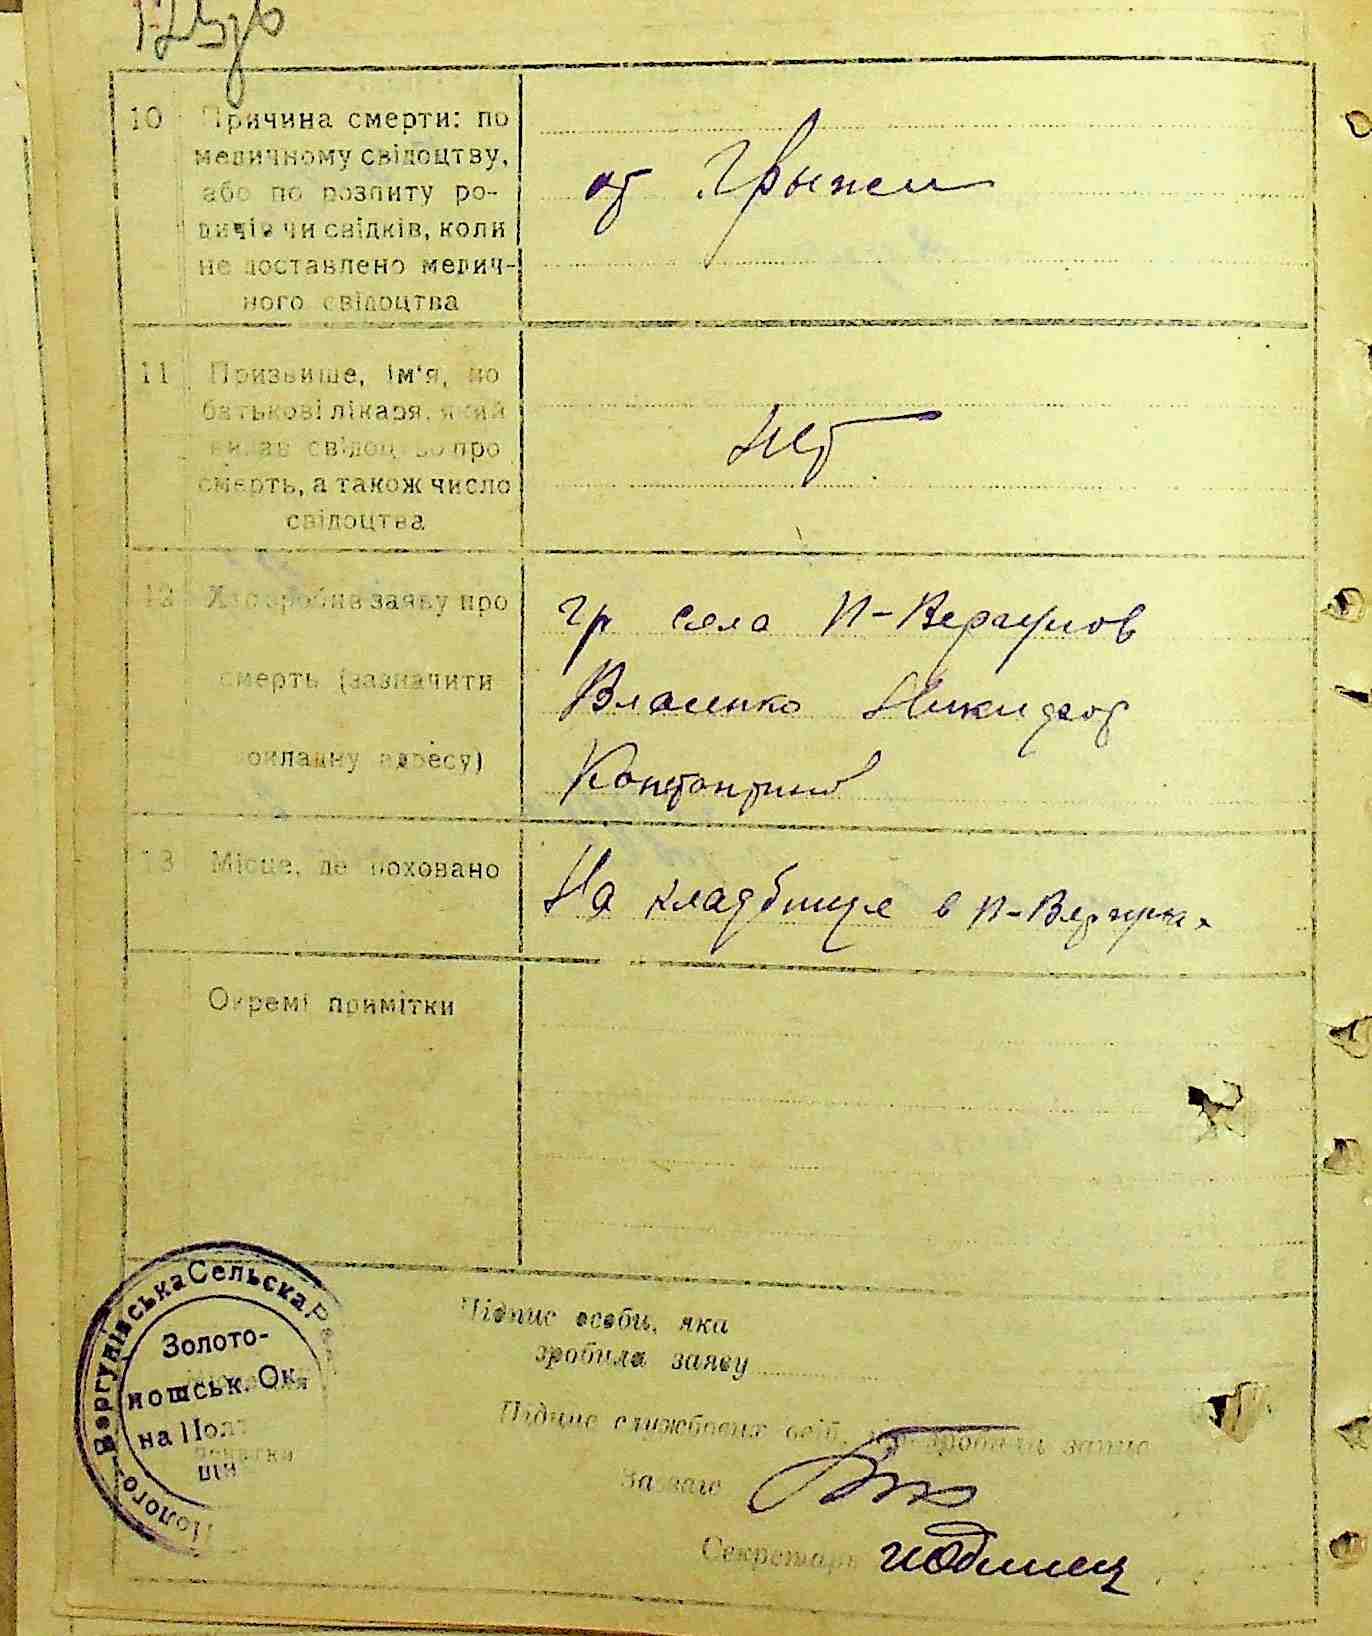 10 Причина смерти: по
медичному свідоцтву,
або по розпиту ро-
дичів чи свідків, коли
не доставлено медич-
ного свідоцтва
от Грыжи
11 Призвище, ім'я, по
батькові лікаря, який
видав свідоцтво про
смерть, а також число
свідоцтва
Нет
12 Хто зробив заяву про
смерть (зазначити
докладну адресу)
гр села П-Вергунов
Власенко Никифор
Константинов
13 Місце, де поховано
На кладбище в П-Вергунах
Окремі примітки
Підпис особи, яка
зробила заяву
Підпис службових осіб, що зробили запис
Зав загс
Секретарь
Полого-Вергунівська Сельска Ра
Золото-
ношськ. Ок.
на Полт